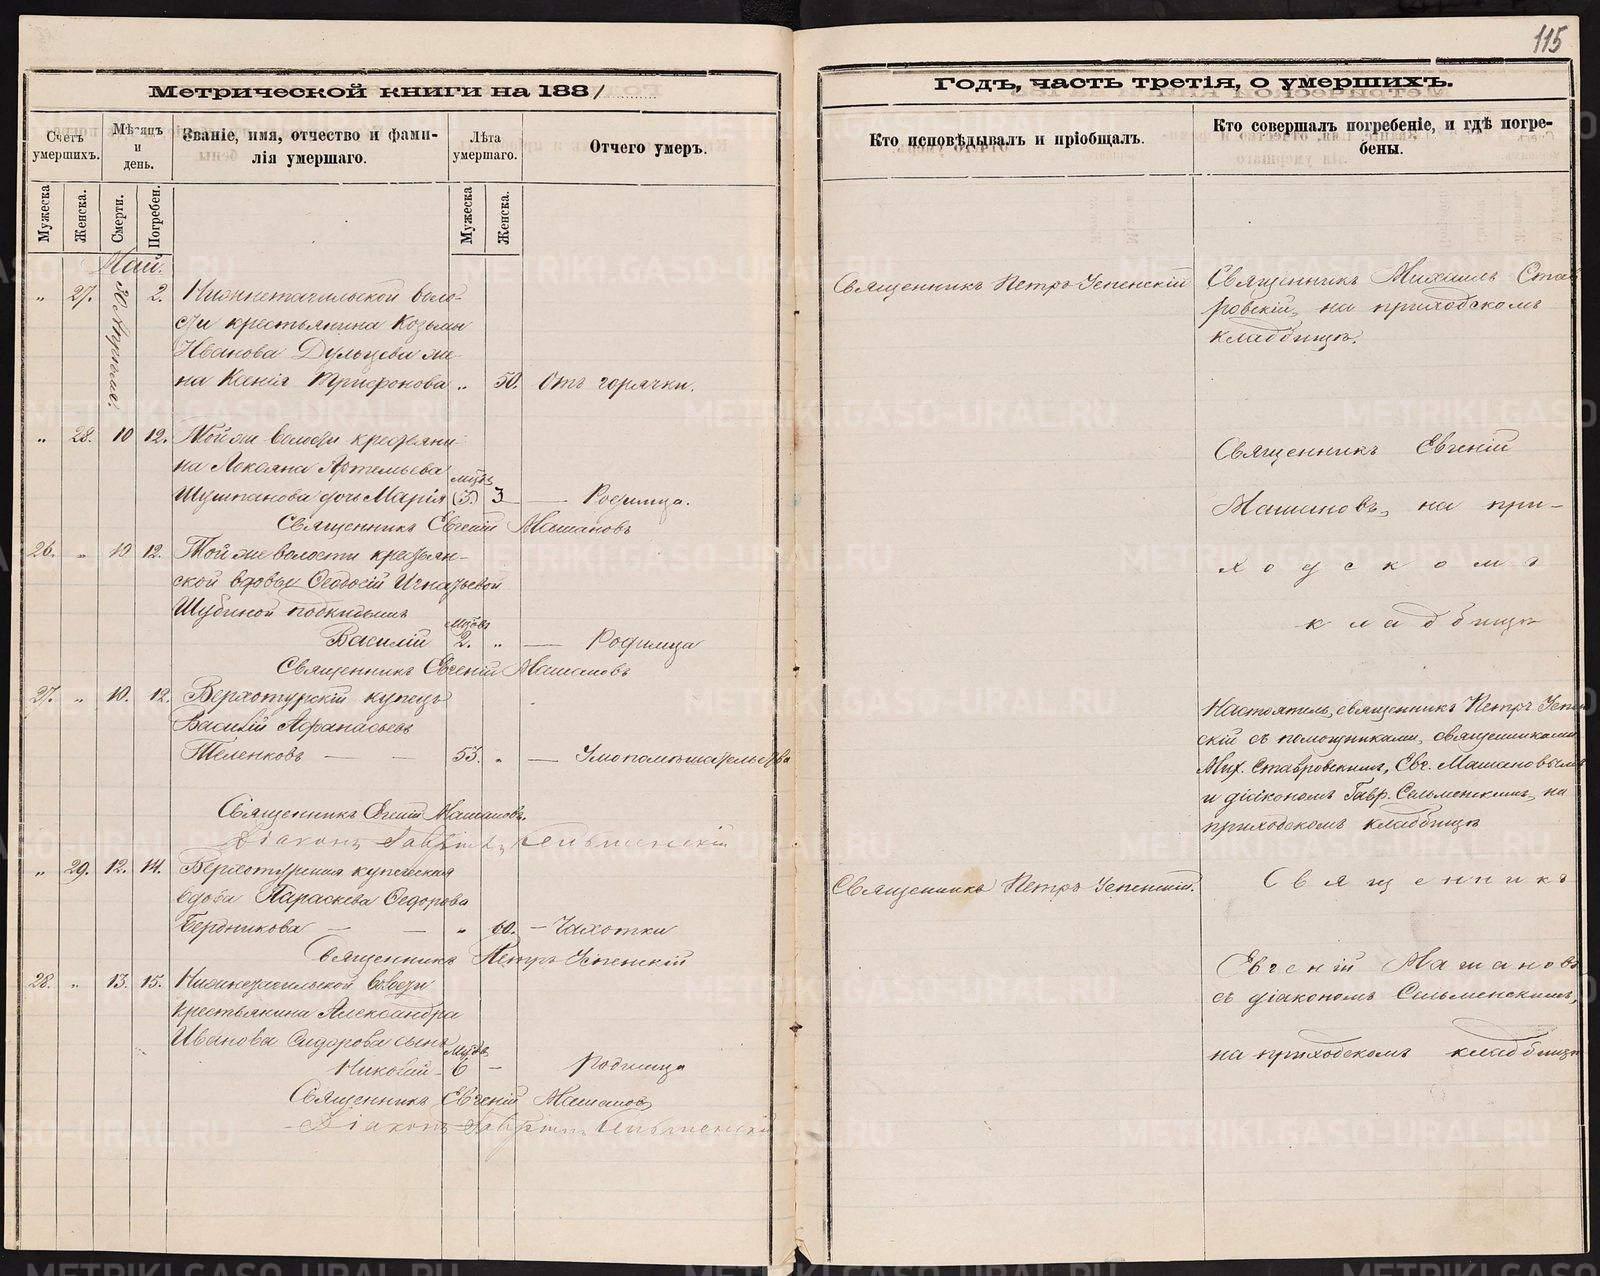 115
Метрической книги на 1881
Годъ, часть третія, о умершихъ.
Счетъ умершихъ.
Мѣсяцъ и день.
Званіе, имя, отчество и фами-
лія умершаго.
Лѣта умершаго.
Отчего умеръ.
Кто исповѣдывалъ и пріобщалъ.
Кто совершалъ погребеніе, и гдѣ погре-
бены.
Мужеска
Женска.
Смерти.
Погребен.
Мужеска
Женска.
Май.
„ 27. 30 Апрѣля. 2. Нижнетагильской воло-
сти крестьянина Козьмы
Иванова Дульцева же-
на Ксенія Трифонова „ 50. Отъ горячки.
Священникъ Петръ Успенскій
Священникъ Михаилъ Став
ровскій, на приходскомъ
кладбищѣ.
„ 28. 10 12. Той же волости крестьяни-
на Артемьева
дочь Марія мѣсъ (3.) 3 — Родимца.
Священникъ Евгеній Машановъ
Священникъ Евгеній
Машановъ, на при-
ходскомъ
кладбищѣ
26. „ 10 12. Той же волости крестьян-
ской вдовы Ѳеодосіи Игнатьевой
Шубиной подкидышъ
Василій 2. „ — Родимца
Священникъ Евгеній Машановъ
27. „ 10. 12. Верхотурскій купецъ
Василій Аѳанасьевъ
Теленковъ — — 53. „ — Умопомѣшательства
Священникъ Евгеній Машановъ.
Діаконъ Гавріилъ Сельменскій
Настоятель, священникъ Петръ Успен
скій съ помощниками, священниками
Мих. Ставровскимъ, Евг. Машановымъ
и діакономъ Гавр. Сельменскимъ, на
приходскомъ кладбищѣ
„ 29. 12. 14. Верхотурская купеческая
вдова Параскева Ѳедорова
Бердникова — — „ 60. — Чахотки
Священникъ Петръ Успенскій
Священникъ Петръ Успенскій.
Священникъ
Евгеній Машановъ
съ діакономъ Сельменскимъ,
на приходскомъ кладбищѣ
28. „ 13. 15. Нижнетагильской волости
крестьянина Александра
Иванова Сидорова сынъ
Николай — 6 — Родимца
Священникъ Евгеній Машановъ
Діаконъ Гавріилъ Сельменскій
METRIKI.GASO-URAL.RU